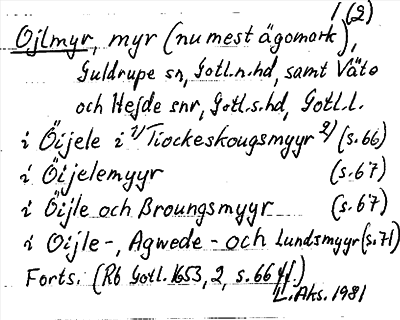 1(2)
Ojlmyr, myr (nu mest ägomark),
Guldrupe sn, Gotl.n.hd, samt Väte
och Hejde snr, Gotl.s.hd, Gotl.l.
i Öijele i 1)Tiockeskougsmyyr 2) (s.66)
i Öijelemyyr (s.67)
i Öijle och Broungsmyyr (s.67)
i Oijle-, Agwede- och Lundsmyyr (s.71)
Forts. (Rb Gotl. 1653, 2, s. 66 ff.)
L. Aks. 1981